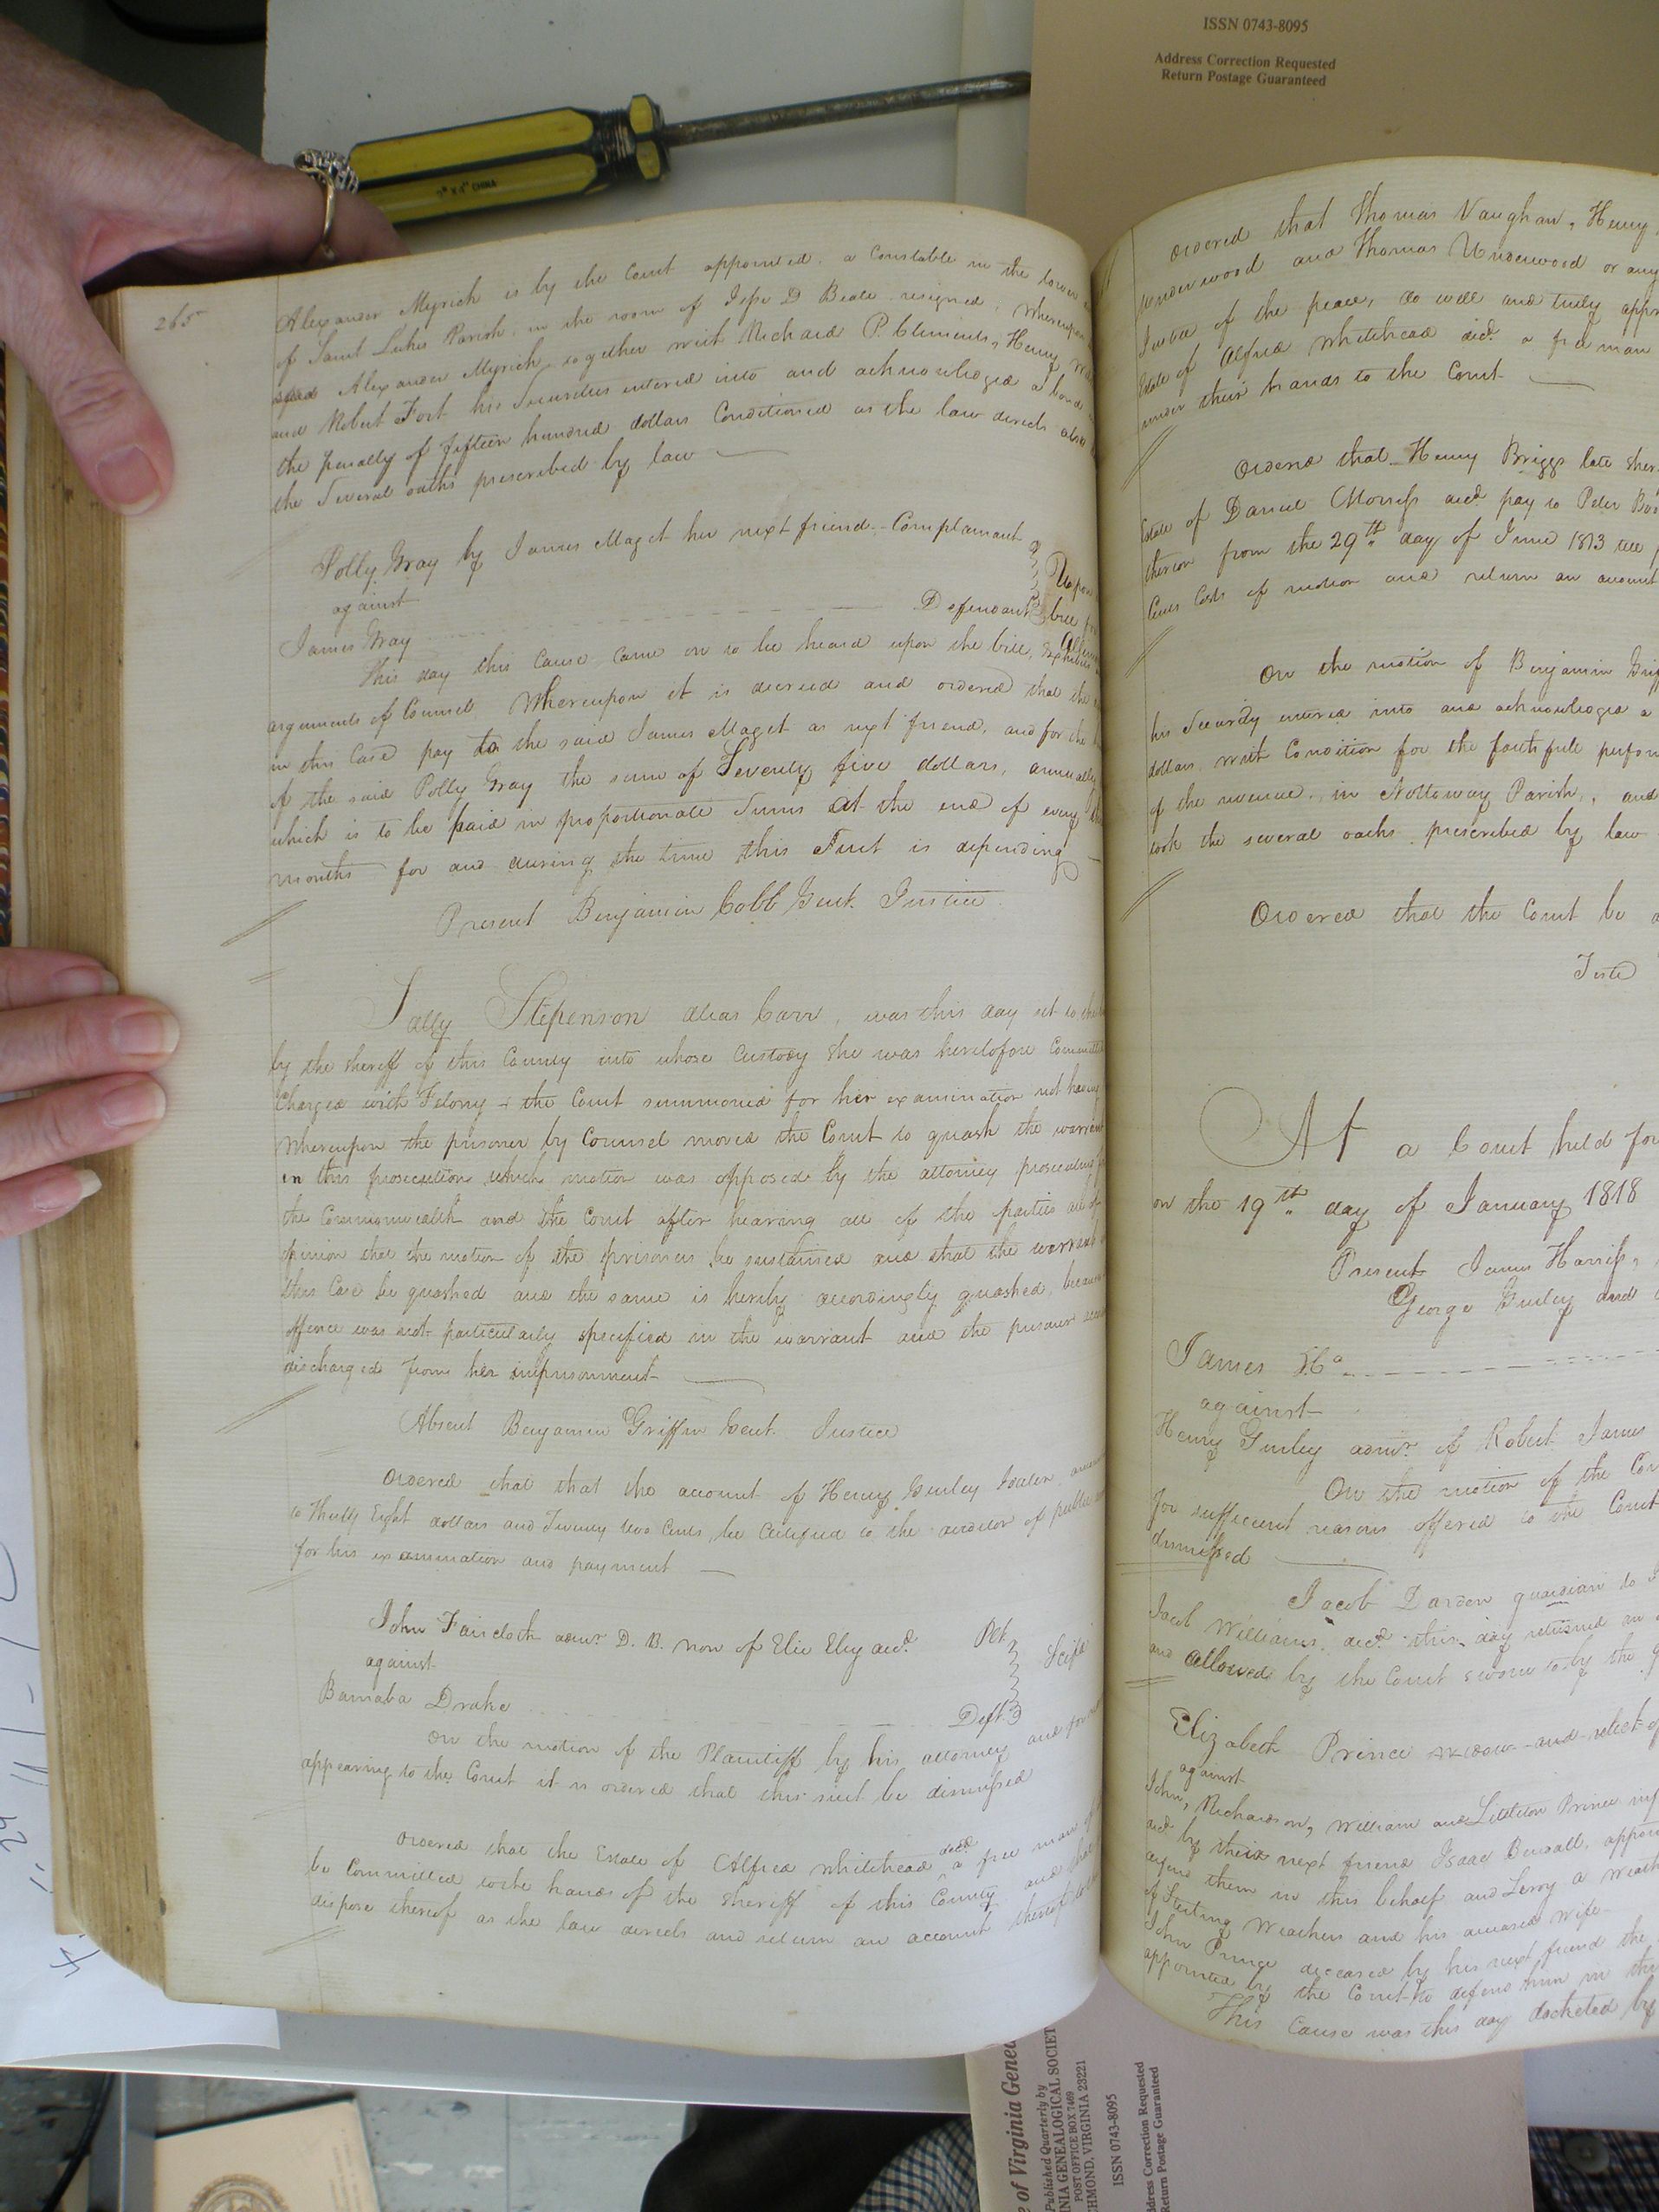 ISSN 0743-8095
Address Correction Requested
Return Postage Guaranteed
CHINA
265
Alexander Myrick is by the Court appointed a Constable in the lower
of Saint Lukes Parish, in the room of Jesse D Beale resigned, Whereupon
Alexander Myrick, together with Richard P. Clements, Henry
and Robert Fort his Securities entered into and acknowledged a bond
the penalty of fifteen hundred dollars Conditioned as the law directs also
the Several oaths prescribed by law
Polly Gray by James Maget her next friend - Complainant
against
James Gray Defendant
Upon
bill
This day this Cause Came on to be heard upon the bill, Exhibits
arguments of Counsel Whereupon it is decreed and ordered that the
in this Case pay to the said James Maget as next friend, and for the
of the said Polly Gray the sum of Seventy five dollars, annually
which is to be paid in proportionate Sums at the end of every
months for and during the time this Suit is depending
Present Benjamin Cobb Gent. Justice
Sally Stepenson alias Carr, was this day set to the
by the Sheriff of this County into whose Custody She was heretofore Committed
Charged with Felony & the Court summoned for her examination not having
Whereupon the prisoner by Counsel moved the Court to quash the warrant
in this prosecution which motion was opposed by the attorney prosecuting
the Commonwealth and the Court after hearing all of the parties are of
opinion that the motion of the prisoner be sustained and that the warrant
this Case be quashed and the same is hereby accordingly quashed, because
offence was not particularly specified in the warrant and the prisoner
discharged from her imprisonment
Absent Benjamin Griffin Gent. Justice
Ordered that that the account of Henry Gurley Joaler
to Thirty Eight dollars and Twenty two Cents, be Certified to the auditor of public
for his examination and payment
John Faircloth admr. D. B. non of Elie Eley decd. Plt.
against
Barnaba Drake Deft.
Scifa
On the motion of the Plaintiff by his attorney and for
appearing to the Court it is ordered that this suit be dismissed
Ordered that the Estate of Alfred Whitehead decd. a free man of
be Committed to the hands of the Sheriff of this County and that
dispose thereof as the law directs and return an account thereof to
Ordered that Thomas Vaughan, Henry
Underwood and Thomas Underwood or any
Justice of the peace, do well and truly
Estate of Alfred Whitehead decd. a free man
under their hands to the Court
Ordered that Henry Briggs late
Estate of Daniel Morriss decd. pay to Peter
thereon from the 29th day of June 1813 till
Cents Costs of motion and return an account
On the motion of Benjamin
his Security entered into and acknowledged a
dollars with Condition for the faithfull
of the revenue, in Nottoway Parish, and
took the several oaths prescribed by law
Ordered that the Court be
Teste
At a Court held for
on the 19th day of January 1818
Present James Harriss,
George Gurley and
James Ho
against
Henry Gurley admr. of Robert James
On the motion of the
for sufficient reasons offered to the Court
dismissed
Jacob Darden guardian to
Jacob Williams decd. this day returned an
and allowed by the Court sworn to by the
Elizabeth Prince widow and relict of
against
John, Richardson, William and Littleton Prince
decd. by their next friend Isaac
defend them in this behalf and Leroy a
of Sterling Weathers and his deceased wife
John Prince deceased by his next friend the
appointed by the Court to defend him in this
This Cause was this day docketed by
of Virginia
Published Quarterly by
GENEALOGICAL SOCIET
POST OFFICE BOX 7469
HMOND, VIRGINIA 23221
ISSN 0743-8095
dress Correction Requested
Return Postage Guaranteed